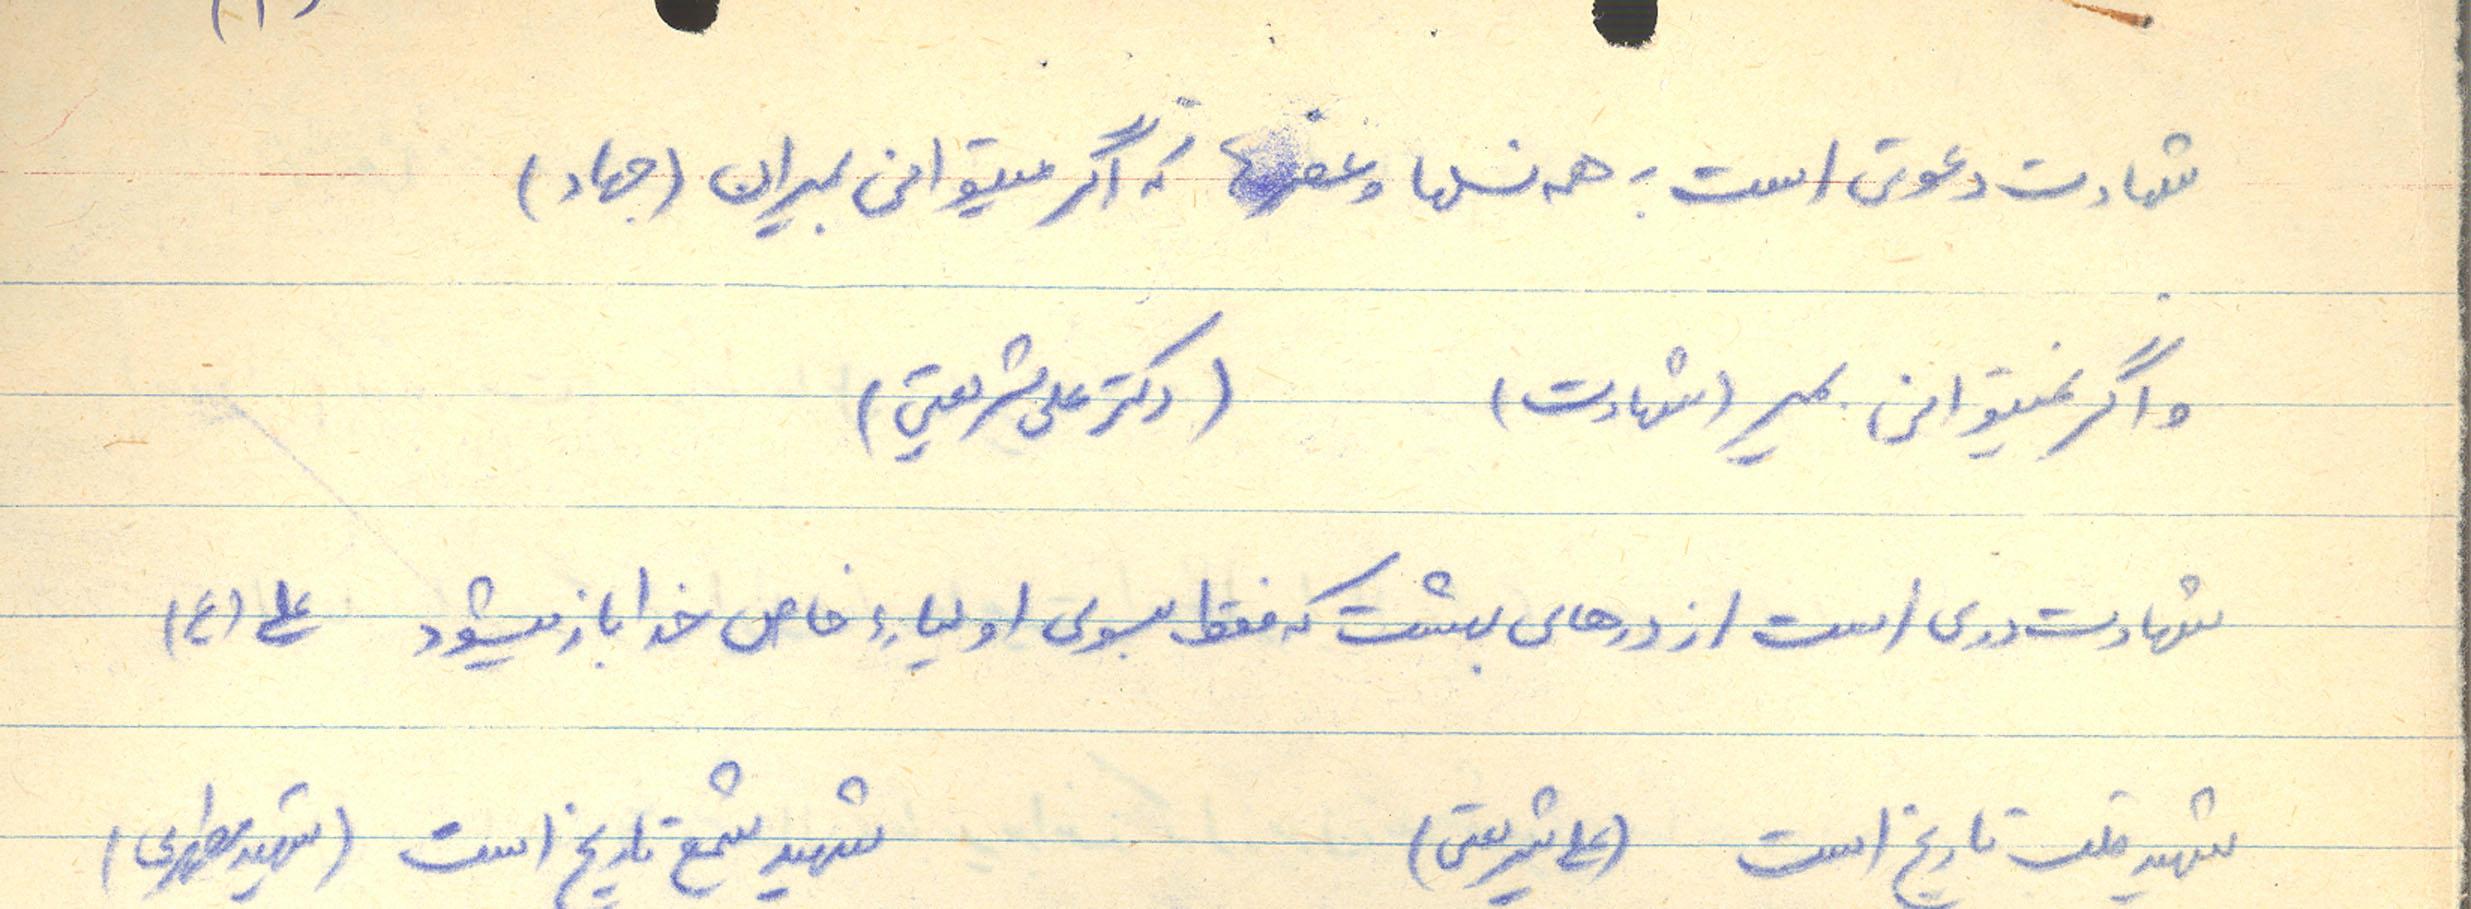 شهادت دعوتی است به همه نسلها و عصرها که اگر میتوانی بمیران (جهاد)
و اگر نمیتوانی بمیر (شهادت) (دکتر علی شریعتی)
شهادت دری است از درهای بهشت که فقط بسوی اولیاء خاص خدا باز میشود علی (ع)
شهید قلب تاریخ است (علی شریعتی) شهید شمع تاریخ است (شهید مطهری)